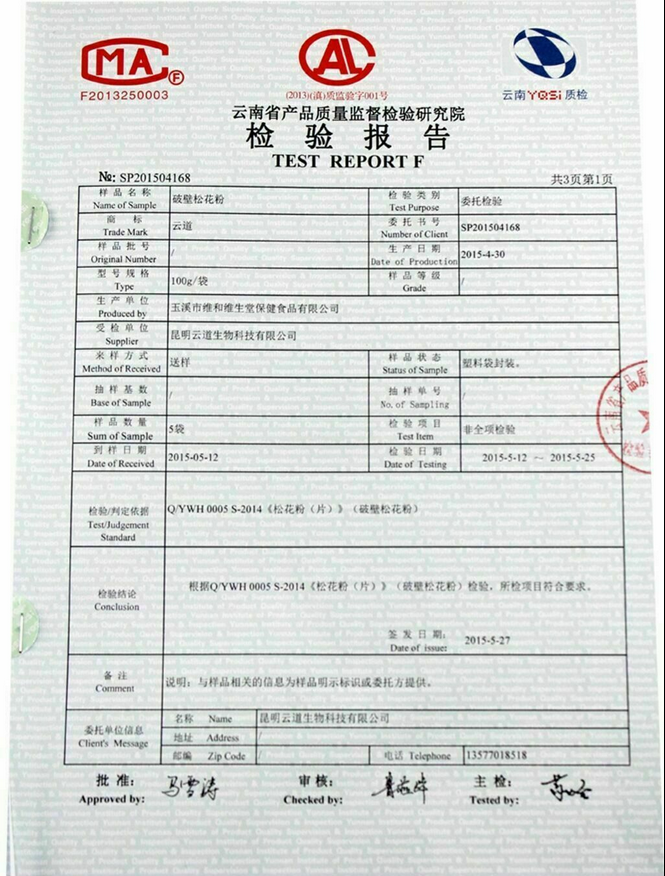 CMA F
F2013250003
CAL
(2013)(滇)质监验字001号
云南YQSi质检
云南省产品质量监督检验研究院
检验报告
TEST REPORT F
№: SP201504168
共3页第1页
样品名称 Name of Sample 破壁松花粉 检验类别 Test Purpose 委托检验
商标 Trade Mark 云道 委托书号 Number of Client SP201504168
样品批号 Original Number / 生产日期 Date of Production 2015-4-30
型号规格 Type 100g/袋 样品等级 Grade /
生产单位 Produced by 玉溪市维和维生堂保健食品有限公司
受检单位 Supplier 昆明云道生物科技有限公司
来样方式 Method of Received 送样 样品状态 Status of Sample 塑料袋封装。
抽样基数 Base of Sample / 抽样单号 No. of Sampling /
样品数量 Sum of Sample 5袋 检验项目 Test Item 非全项检验
到样日期 Date of Received 2015-05-12 检验日期 Date of Testing 2015-5-12 ~ 2015-5-25
检验/判定依据 Test/Judgement Standard Q/YWH 0005 S-2014《松花粉（片）》（破壁松花粉）
检验结论 Conclusion 根据Q/YWH 0005 S-2014《松花粉（片）》（破壁松花粉）检验，所检项目符合要求。
签发日期: Date of issue: 2015-5-27
备注 Comment 说明：与样品相关的信息为样品明示标识或委托方提供。
委托单位信息 Client's Message
名称 Name 昆明云道生物科技有限公司
地址 Address /
邮编 Zip Code / 电话 Telephone 13577018518
批准: Approved by: 马雪涛 审核: Checked by: 主检: Tested by: